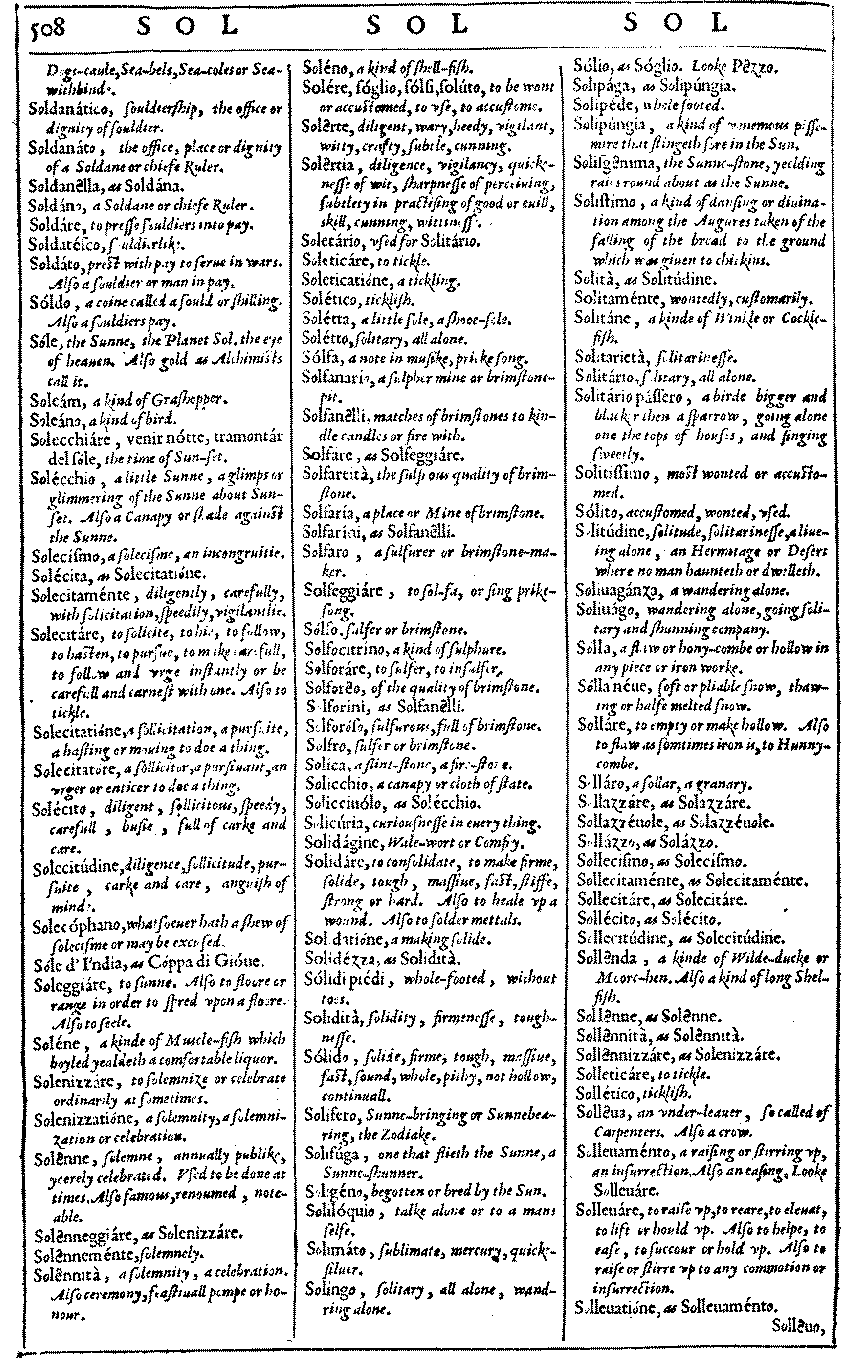 508 SOL SOL SOL
Dogs-caule, Sea-bels, Sea-coles or Sea-
withbinde.
Soldanático, souldiership, the office or
dignity of souldier.
Soldanáto, the office, place or dignity
of a Soldane or chiefe Ruler.
Soldanẽlla, as Soldána.
Soldána, a Soldane or chiefe Ruler.
Soldáre, to presse souldiers into pay.
Soldatésco, souldierlike.
Soldáto, prest with pay to serue in wars.
Also a souldier or man in pay.
Sóldo, a coine called a sould or shilling.
Also a souldiers pay.
Sóle, the Sunne, the Planet Sol. the eye
of heauen. Also gold as Alchimists
call it.
Soleám, a kind of Grashopper.
Soleáno, a kind of bird.
Solecchiáre, venir nótte, tramontár
del sóle, the time of Sun-set.
Solécchio, a little Sunne, a glimps or
glimmering of the Sunne about Sun-
set. Also a Canapy or shade against
the Sunne.
Solecísmo, a solecisme, an incongruitie.
Solécita, as Solecitatióne.
Solecitaménte, diligently, carefully,
with solicitation, speedily, vigilantlie.
Solecitáre, to solicite, to hie, to follow,
to hasten, to pursue, to make carefull,
to follow and vrge instantly or be
carefull and carnest with one. Also to
tickle.
Solecitatióne, a sollicitation, a pursuite,
a hasting or mouing to doe a thing.
Solecitatóre, a sollicitor, a pursiuant, an
vrger or enticer to doe a thing.
Solécito, diligent, sollicitous, speedy,
carefull, busie, full of carke and
care.
Solecitúdine, diligence, sollicitude, pur-
suite, carke and care, anguish of
minde.
Solecóphano, what soeuer hath a shew of
solecisme or may be excused.
Sóle d'I'ndia, as Cóppa di Gióue.
Soleggiáre, to sunne. Also to floore or
range in order to spred vpon a floore.
Also to seele.
Soléne, a kinde of Muscle-fish which
boyled yealdeth a comfortable liquor.
Solenizzáre, to solemnize or celebrate
ordinarily at sometimes.
Solenizzatióne, a solemnity, a solemni-
zation or celebration.
Solẽnne, solemne, annually publike,
yeerely celebrated. Vsed to be done at
times. Also famous, renoumed, note-
able.
Solẽnneggiáre, as Solenizzáre.
Solẽnneménte, solemnely.
Solẽnnità, a solemnity, a celebration.
Also ceremony, feastiuall pompe or ho-
nour.
Soléno, a kind of shell-fish.
Solére, sóglio, sólsi, solúto, to be wont
or accustomed, to vse, to accustome.
Solẽrte, diligent, wary, heedy, vigilant,
witty, crafty, subtle, cunning.
Solẽrtia, diligence, vigilancy, quicke-
nesse of wit, sharpnesse of perceiuing,
subtlety in practising of good or euill,
skill, cunning, wittinesse.
Soletário, vsed for Solitário.
Soleticáre, to tickle.
Soleticatióne, a tickling.
Solético, ticklish.
Solétta, a little sole, a shooe-sole.
Solétto, solitary, all alone.
Sólfa, a note in musike, pricke song.
Solfanaría, a sulpher mine or brimstone-
pit.
Solfanẽlli, matches of brimstones to kin-
dle candles or fire with.
Solfare, as Solfeggiáre.
Solfareità, the sulphous quality of brim-
stone.
Solfaría, a place or Mine of brimstone.
Solfaríni, as Solfanẽlli.
Solfaro, a sulfurer or brimstone-ma-
ker.
Solfeggiáre, to sol-fa, or sing prike-
song.
Sólfo, sulfer or brimstone.
Solfocitríno, a kind of sulphure.
Solforáre, to sulfer, to insulfer.
Solforẽo, of the quality of brimstone.
Solforini, as Solfanẽlli.
Solforóso, sulfurous, full of brimstone.
Solfro, sulfer or brimstone.
Solica, a flint-stone, a fire-stone.
Solicchio, a canapy or cloth of state.
Solicciuólo, as Solécchio.
Solicúria, curiousnesse in euery thing.
Solidágine, Wale-wort or Comfry.
Solidáre, to consolidate, to make firme,
solide, tough, massiue, fast, stiffe,
strong or hard. Also to heale vp a
wound. Also to solder mettals.
Solidatióne, a making solide.
Solidézza, as Solidità.
Sólidi piédi, whole-footed, without
toes.
Solidità, solidity, firmenesse, tough-
nesse.
Sólido, solide, firme, tough, massiue,
fast, sound, whole, pithy, not hollow,
continuall.
Solífero, Sunne-bringing or Sunnebea-
ring, the Zodiake.
Solifúga, one that flieth the Sunne, a
Sunne-shunner.
Soligéno, begotten or bred by the Sun.
Solilóquio, talke alone or to a mans
selfe.
Solimáto, sublimate, mercury, quicke-
siluer.
Solingo, solitary, all alone, wand-
ring alone.
Sólio, as Sóglio. Looke Pẽzzo.
Solipága, as Solipúngia.
Solipéde, whole footed.
Solipúngia, a kind of venemous pisse-
mire that stingeth sore in the Sun.
Solisgẽmma, the Sunne-stone, yeelding
raies round about as the Sunne.
Solístimo, a kind of dansing or diuina-
tion among the Augures taken of the
falling of the bread to the ground
which was giuen to chickins.
Solità, as Solitúdine.
Solitaménte, wontedly, customarily.
Solitáne, a kinde of Winkle or Cockle-
fish.
Solitarietà, solitarinesse.
Solitário, solitary, all alone.
Solitário pássero, a birde bigger and
blacker then a sparrow, going alone
one the tops of houses, and singing
sweetly.
Solitíssimo, most wonted or accusto-
med.
Sólito, accustomed, wonted, vsed.
Solitúdine, solitude, solitarinesse, a liue-
ing alone, an Hermitage or Desert
where no man haunteth or dwelleth.
Soliuagánza, a wandering alone.
Soliuágo, wandering alone, going soli-
tary and shunning company.
Solla, a flaw or hony-combe or hollow in
any piece or iron worke.
Sólla néue, soft or pliable snow, thaw-
ing or halfe melted snow.
Solláre, to empty or make hollow. Also
to flaw as somtimes iron is, to Hunny-
combe.
Solláro, a sollar, a granary.
Sollazzáre, as Solazzáre.
Sollazzéuole, as Solazzéuole.
Sollázzo, as Solázzo.
Sollecísmo, as Solecísmo.
Sollecitaménte, as Solecitaménte.
Sollecitáre, as Solecitáre.
Sollécito, as Solécito.
Sollecitúdine, as Solecitúdine.
Sollẽnda, a kinde of Wilde-ducke or
Moore-hen. Also a kind of long Shel-
fish.
Sollẽnne, as Solẽnne.
Sollẽnnità, as Solẽnnità.
Sollẽnnizzáre, as Solenizzáre.
Solleticáre, to tickle.
Sollético, ticklish.
Sollẽua, an vnder-leauer, so called of
Carpenters. Also a crow.
Solleuaménto, a raising or stirring vp,
an insurrection. Also an easing. Looke
Solleuáre.
Solleuáre, to raise vp, to reare, to eleuat,
to lift or hould vp. Also to helpe, to
ease, to succour or hold vp. Also to
raise or stirre vp to any commotion or
insurrection.
Solleuatióne, as Solleuaménto.
Sollẽuo,